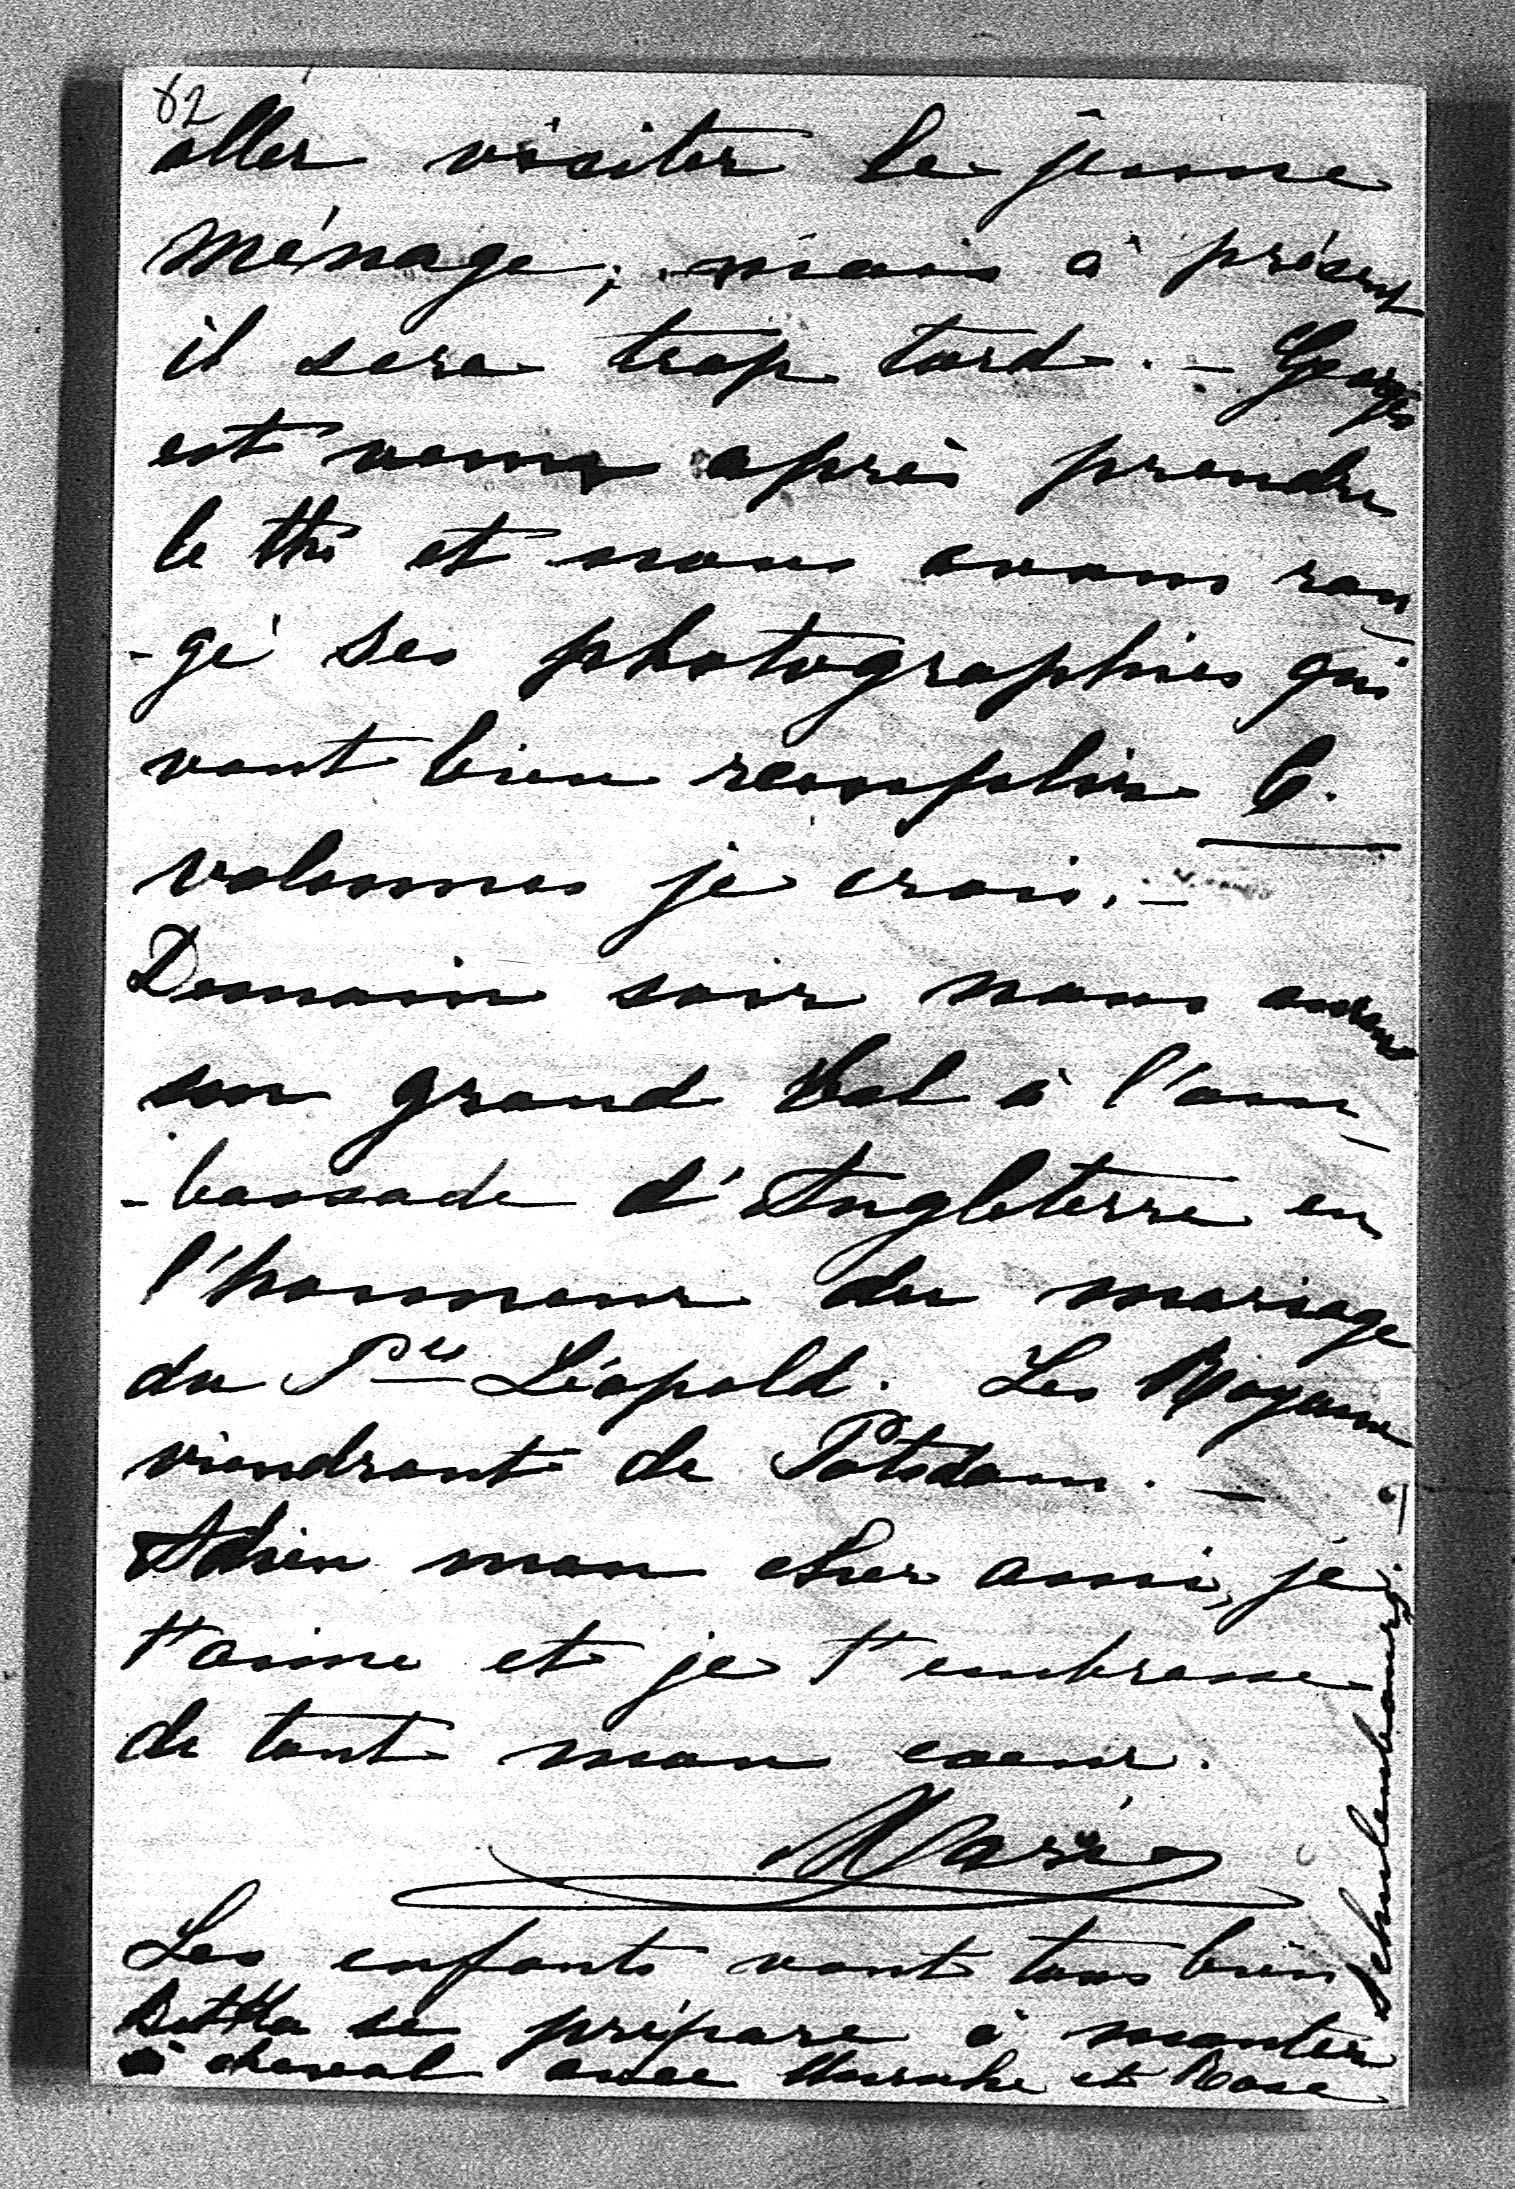 62
aller visiter le jeune
ménage, mais à présent
il sera trop tard. — Georges
est venu après prendre
le thé et nous avons ran
-gé ses photographies qui
vont bien remplir 6.
volumes je crois. —
Demain soir nous aurons
un grand bal à l'am
-bassade d'Angleterre en
l'honneur du mariage
du Pce Léopold. Les Royaux
viendront de Potsdam. —
Adieu mon cher ami, je
t'aime et je t'embrasse
de tout mon coeur.
Marie
Les enfants vont tous bien
se prépare à monter
à cheval avec et Rose
Schulembourg. —